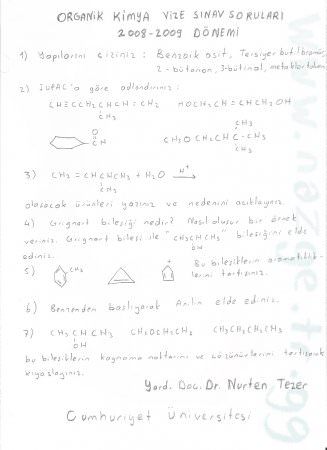 ORGANİK KİMYA VİZE SINAV SORULARI
2008-2009 DÖNEMİ
1) Yapılarını çiziniz : Benzoik asit, Tersiyer butil bromür,
2-bütanon, 3-bütinal, metakloritoluen
2) IUPAC'a göre adlandırınız :
CH≡CCH₂CHCH=CH₂ HOCH₂CH=CHCH₂OH
CH₃
O
CH
CH₃
CH₃O CH₂CH₂C-CH₃
CH₃
3) CH₂=CHCHCH₃ + H₂O H⁺
CH₃
olaşacak ürünleri yazınız ve nedenini açıklayınız.
4) Grignart bileşiği nedir? Nasıl oluşur bir örnek
veriniz. Grignart bileşi ile "CH₃CHCH₃" bileşiğini elde
OH
ediniz.
5) CH₃ + Bu bileşiklerin aromatiklik-
lerini tartışınız.
6) Benzenden başlıyarak Anilin elde ediniz.
7) CH₃CHCH₃ CH₃OCH₂CH₃ CH₃CH₂CH₂CH₃
OH
bu bileşiklerin kaynama noktarını ve çözünürlerini tartışarak
kıyaslayınız.
Yard. Doc. Dr. Nurten Tezer
Cumhuriyet Üniversitesi